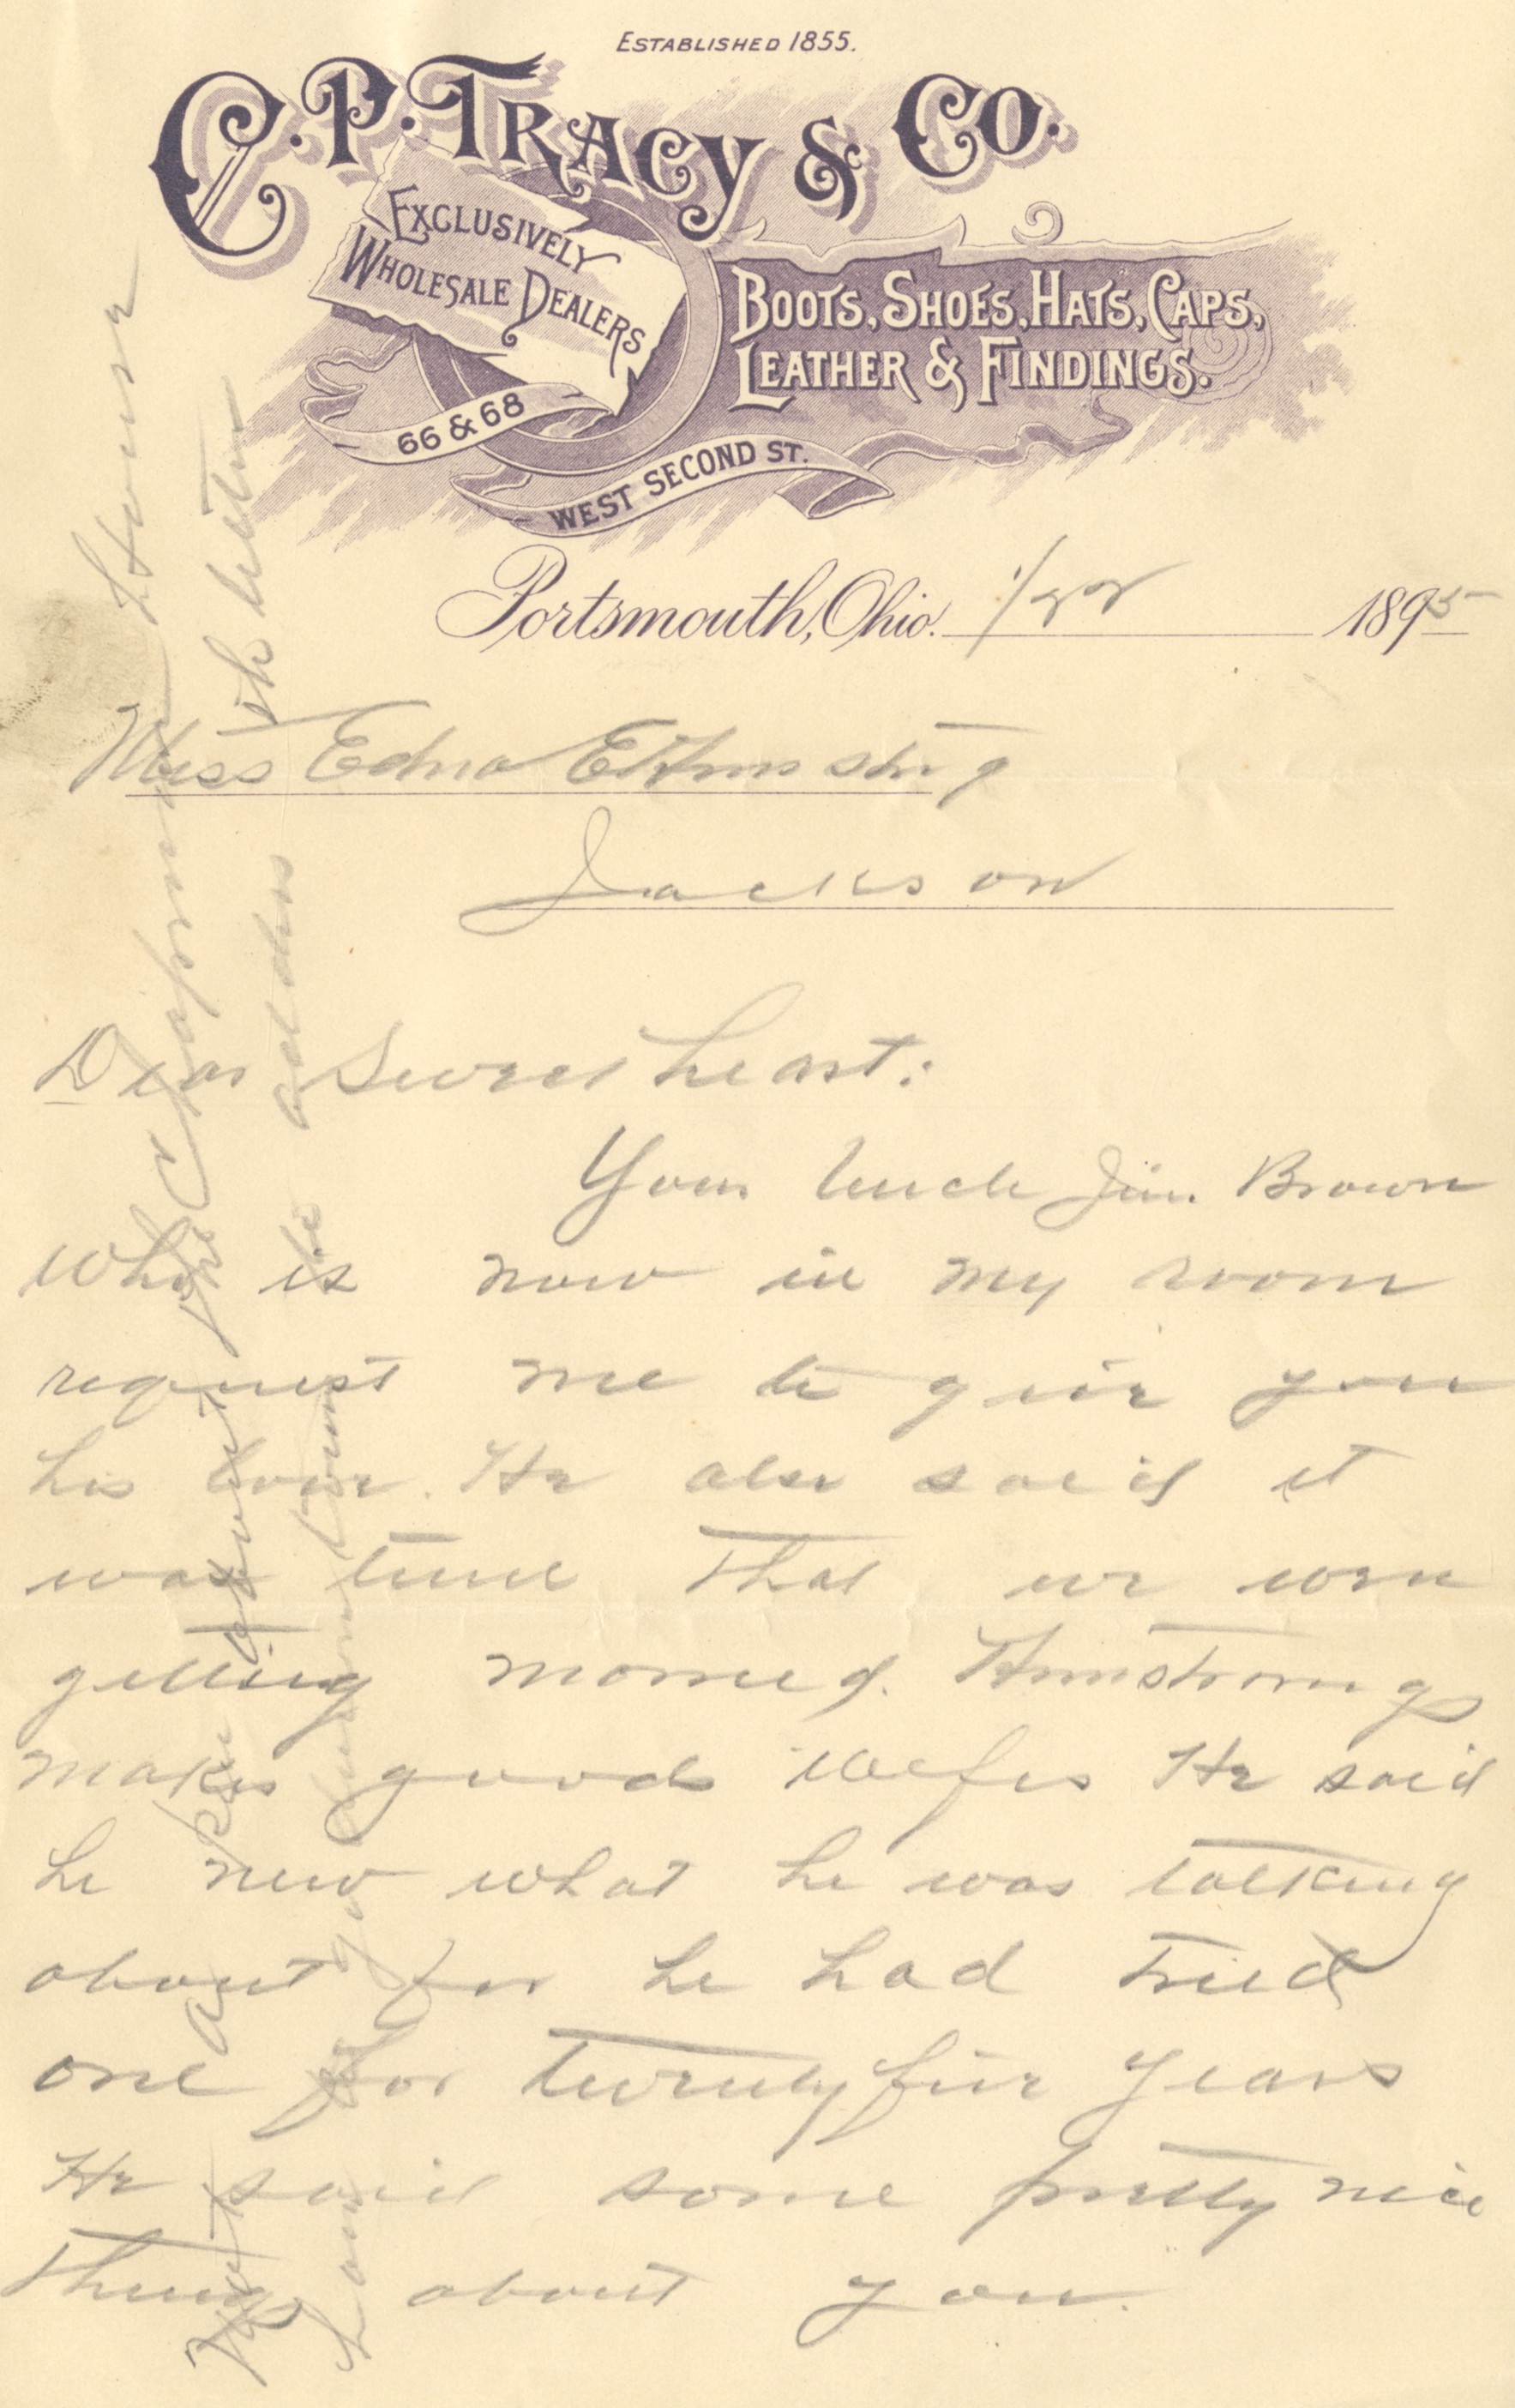 ESTABLISHED 1855.
C. P. TRACY & CO.
EXCLUSIVELY
WHOLESALE DEALERS
BOOTS, SHOES, HATS, CAPS,
LEATHER & FINDINGS.
66 & 68
WEST SECOND ST.
Portsmouth, Ohio. 1/22 1895
Miss Edna
Jackson
Dear Sweet heart:
Your Uncle Jim. Brown
who is now in my room
request me to give you
his love. He also said it
was time that we were
getting married. Armstrongs
makes good wifes He said
he new what he was talking
about for he had tried
one for twenty five years
He said some pretty nice
things about you.